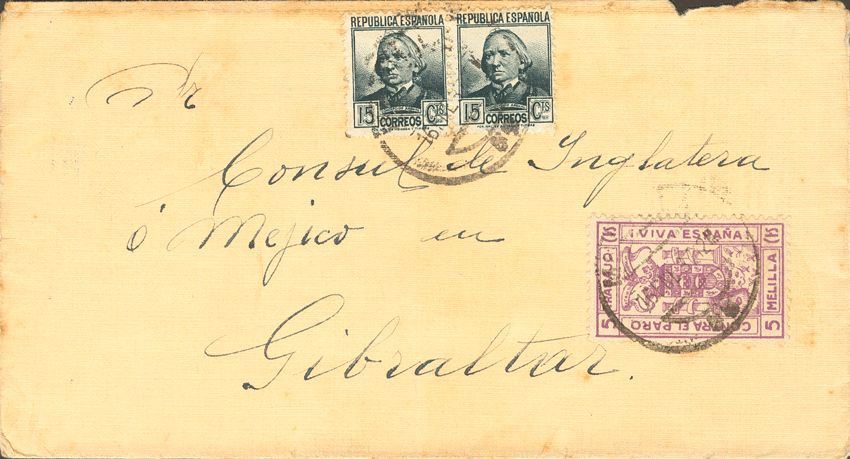 REPUBLICA ESPAÑOLA
15 CTS
CORREOS
REPUBLICA ESPAÑOLA
15 CTS
CORREOS
Sr
Consul de Inglatera
ó Mejico en
Gibraltar.
¡VIVA ESPAÑA!
5
MELILLA
CONTRA EL PARO
5